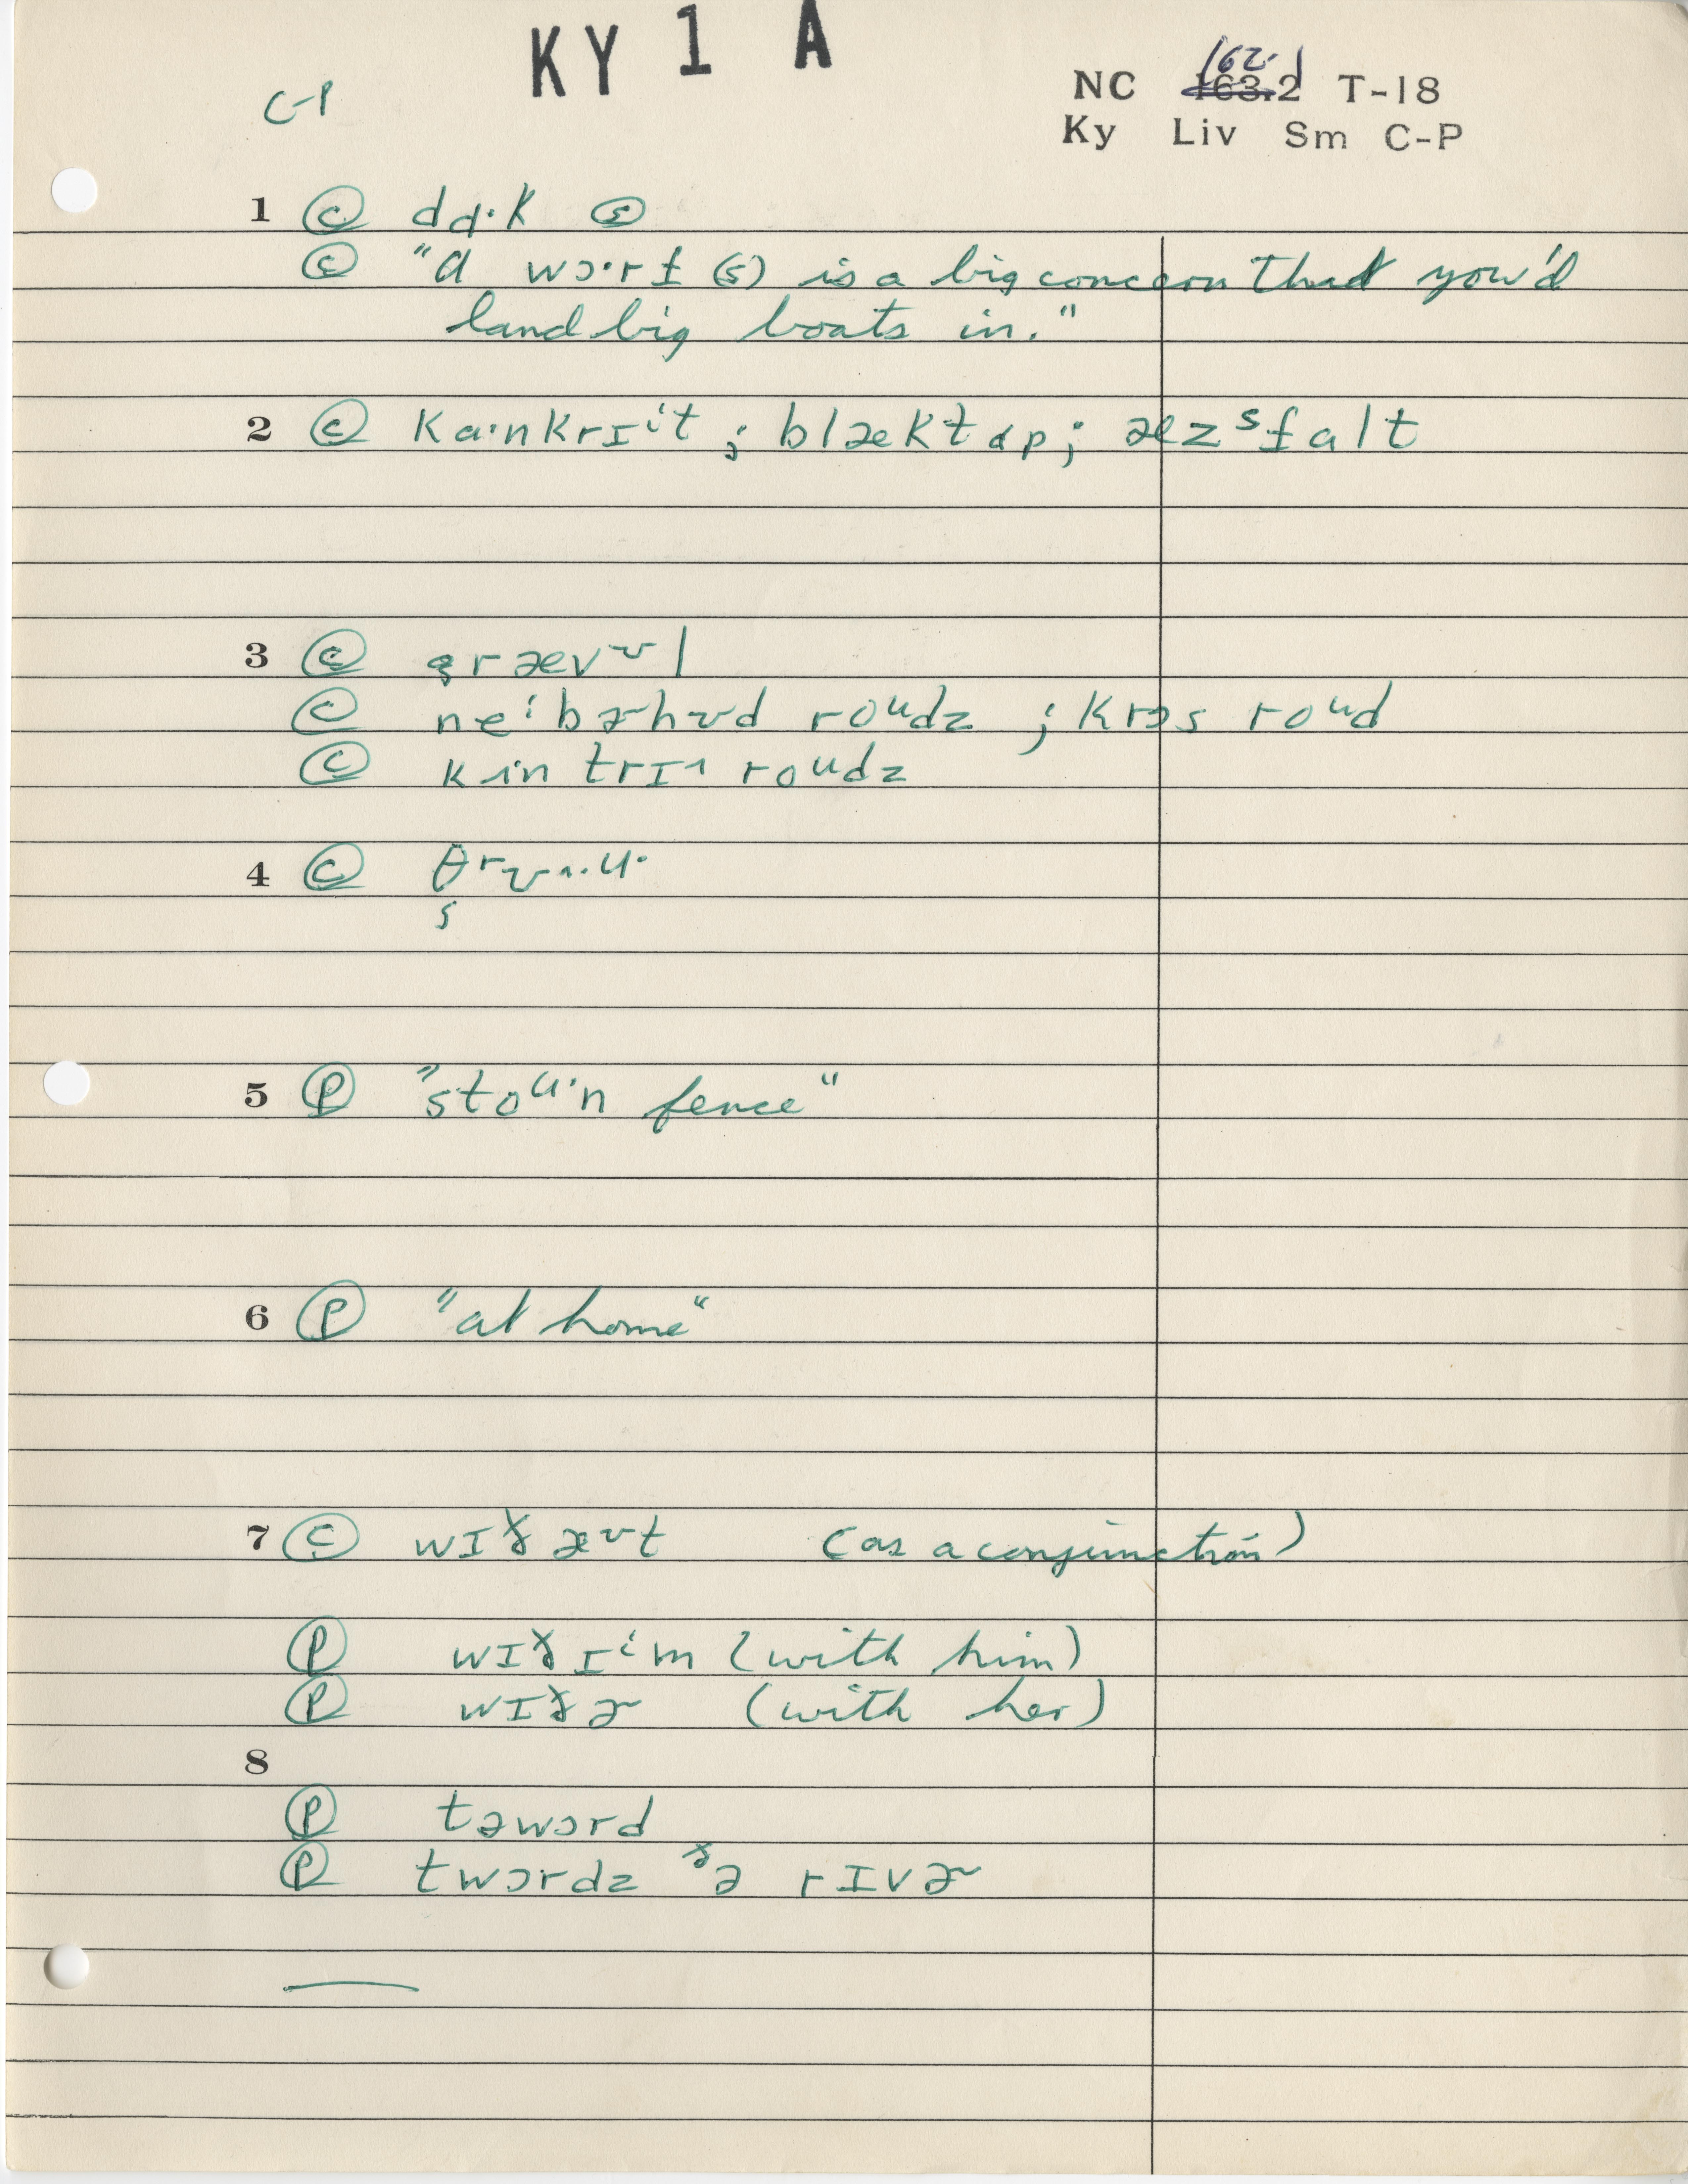 KY 1 A
C-P
NC 163.2 162.1 T-18
Ky Liv Sm C-P
1 Ⓒ dɑɑ·k Ⓢ
Ⓒ "A wɔ·rf (s) is a big concern that you'd
land big boats in."
2 Ⓒ kɑ·nkrɪit ; blæktɑp; æzˢfalt
3 Ⓒ grævʊl
Ⓒ neⁱbɚhʊd roᵘdz ; krɔs roᵘd
Ⓒ kɨntrɪɨ roᵘdz
4 Ⓒ
s
5 Ⓟ "stoᵘ·n fence"
6 Ⓟ "at home"
7 Ⓒ wɪðæʊt (as a conjunction)
Ⓟ wɪðɪⁱm (with him)
Ⓟ wɪðɚ (with her)
8
Ⓟ təwɔrd
Ⓟ twɔrdz ðə rɪvɚ